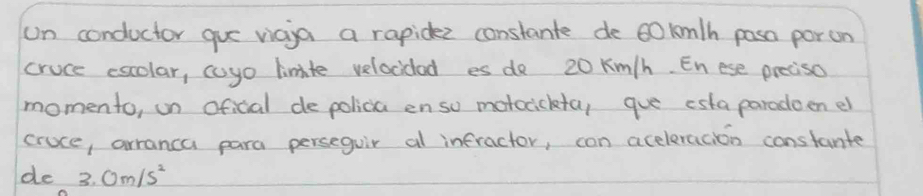 Un conductor que viaja a rapidez constante de 60 km/h pasa por un
cruce escolar, cuyo limite velocidad es de 20 Km/h. En ese preciso
momento, un oficial de policia en su motocicleta, que esta parado en el
cruce, arranca para perseguir al infractor, con aceleración constante
de 3.0m/s²